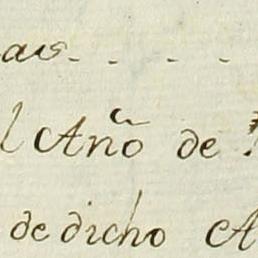 as. . . . .
l Año de
de dicho A